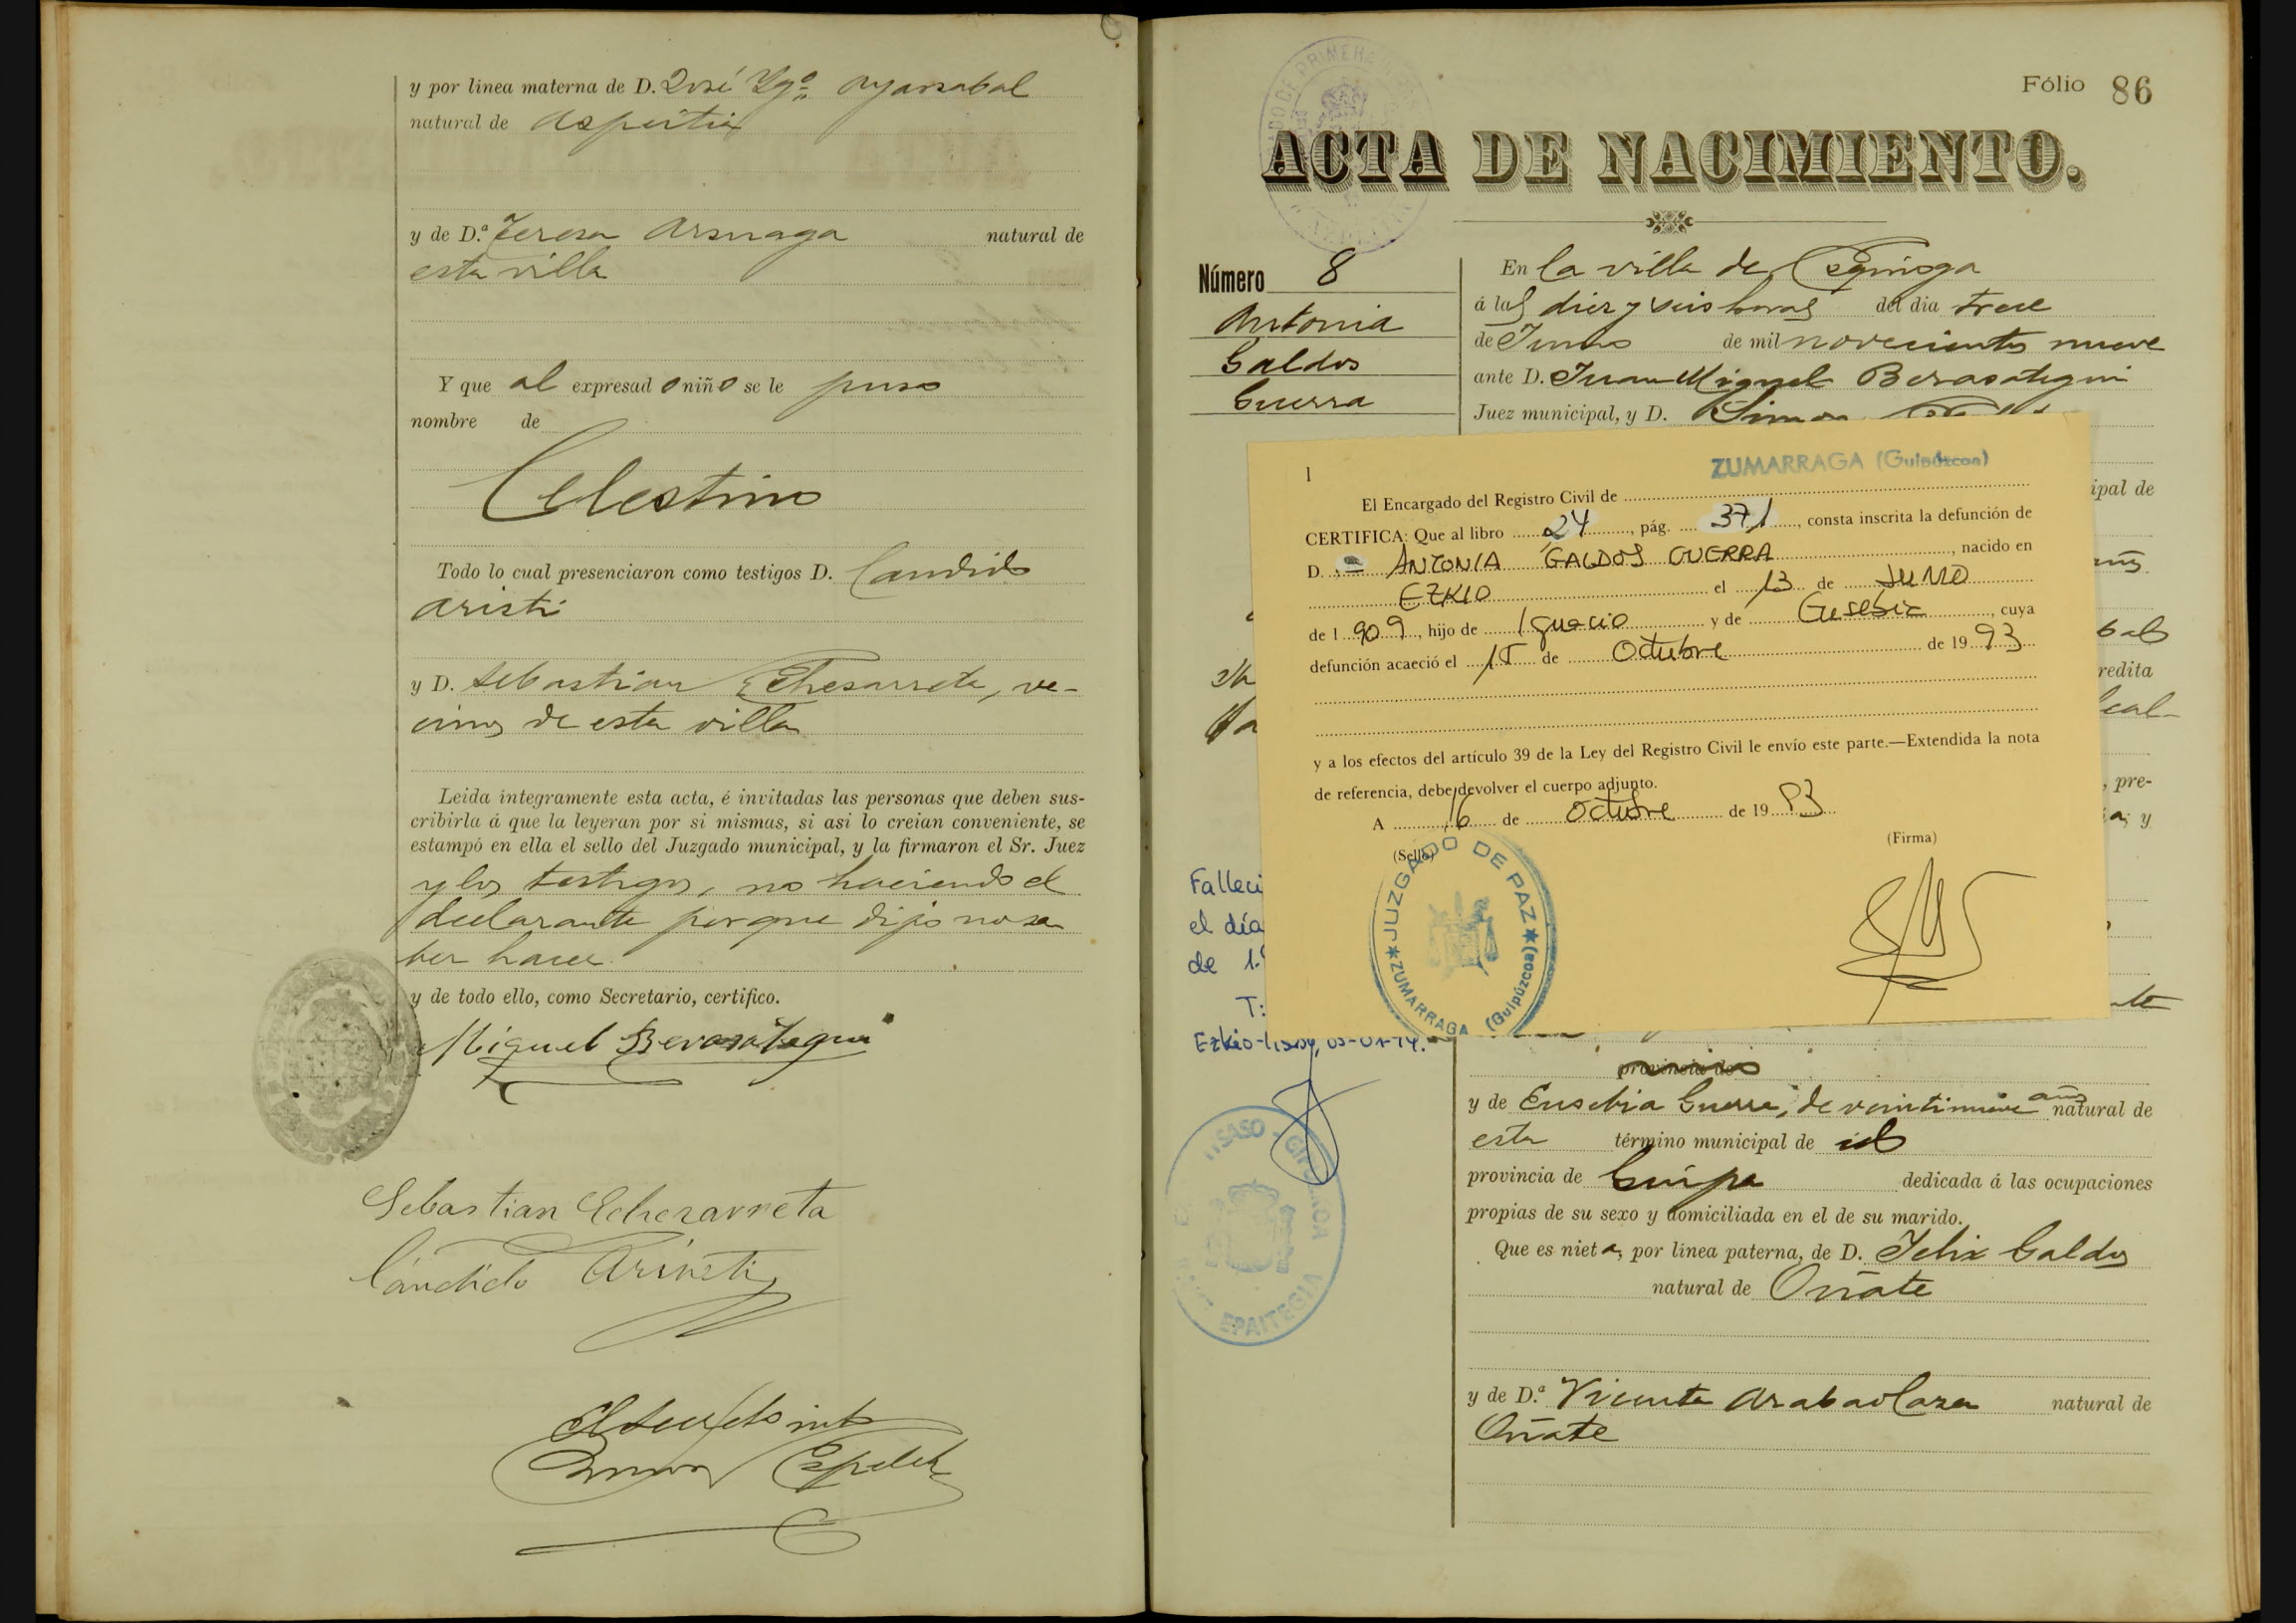 y por línea materna de D. José Ygº Oyarzabal
natural de Azpeitia
y de D.ª Teresa Arsuaga natural de
esta villa
Y que al expresado niño se le puso
nombre de
Celestino
Todo lo cual presenciaron como testigos D. Candido
Aristi
y D. Sebastian Echezarreta, ve-
cinos de esta villa
Leida íntegramente esta acta, é invitadas las personas que deben sus-
cribirla á que la leyeran por si mismas, si asi lo creian conveniente, se
estampó en ella el sello del Juzgado municipal, y la firmaron el Sr. Juez
y los testigos, no haciendo el
declarante porque dijo no sa
ber hacer
y de todo ello, como Secretario, certifico.
Miguel Berasategui
Sebastian Echezarreta
Cándido Aristi
Fólio 86
ACTA DE NACIMIENTO.
Número 8
Antonia
Galdos
Guerra
En la villa de Ezquioga
á las diez y seis horas del dia trece
de Junio de mil novecientos nueve
ante D. Juan Miguel Berasategui
Juez municipal, y D. Simon
1
ZUMARRAGA (Guipúzcoa)
El Encargado del Registro Civil de
CERTIFICA: Que al libro 24, pág. 371, consta inscrita la defunción de
D. ANTONIA GALDOS GUERRA, nacido en
EZKIO el 13 de JUNIO
de 1909, hijo de Ignacio y de Eusebia, cuya
defunción acaeció el 15 de Octubre de 1993
y a los efectos del artículo 39 de la Ley del Registro Civil le envío este parte.—Extendida la nota
de referencia, debe devolver el cuerpo adjunto.
A 16 de Octubre de 1993
(Sello)
(Firma)
JUZGADO DE PAZ
ZUMARRAGA (Guipúzcoa)
ipal de
redita
, pre-
a; y
Falleci
el día
de 1.
T:
y de Eusebia Guerra, de veintinueve años natural de
esta término municipal de id
provincia de Guipa dedicada á las ocupaciones
propias de su sexo y domiciliada en el de su marido.
Que es nieta, por línea paterna, de D. Felix Galdos
natural de Oñate
y de D.ª Vicenta Arabaolaza natural de
Oñate
ITSASO
EPAITEGIA